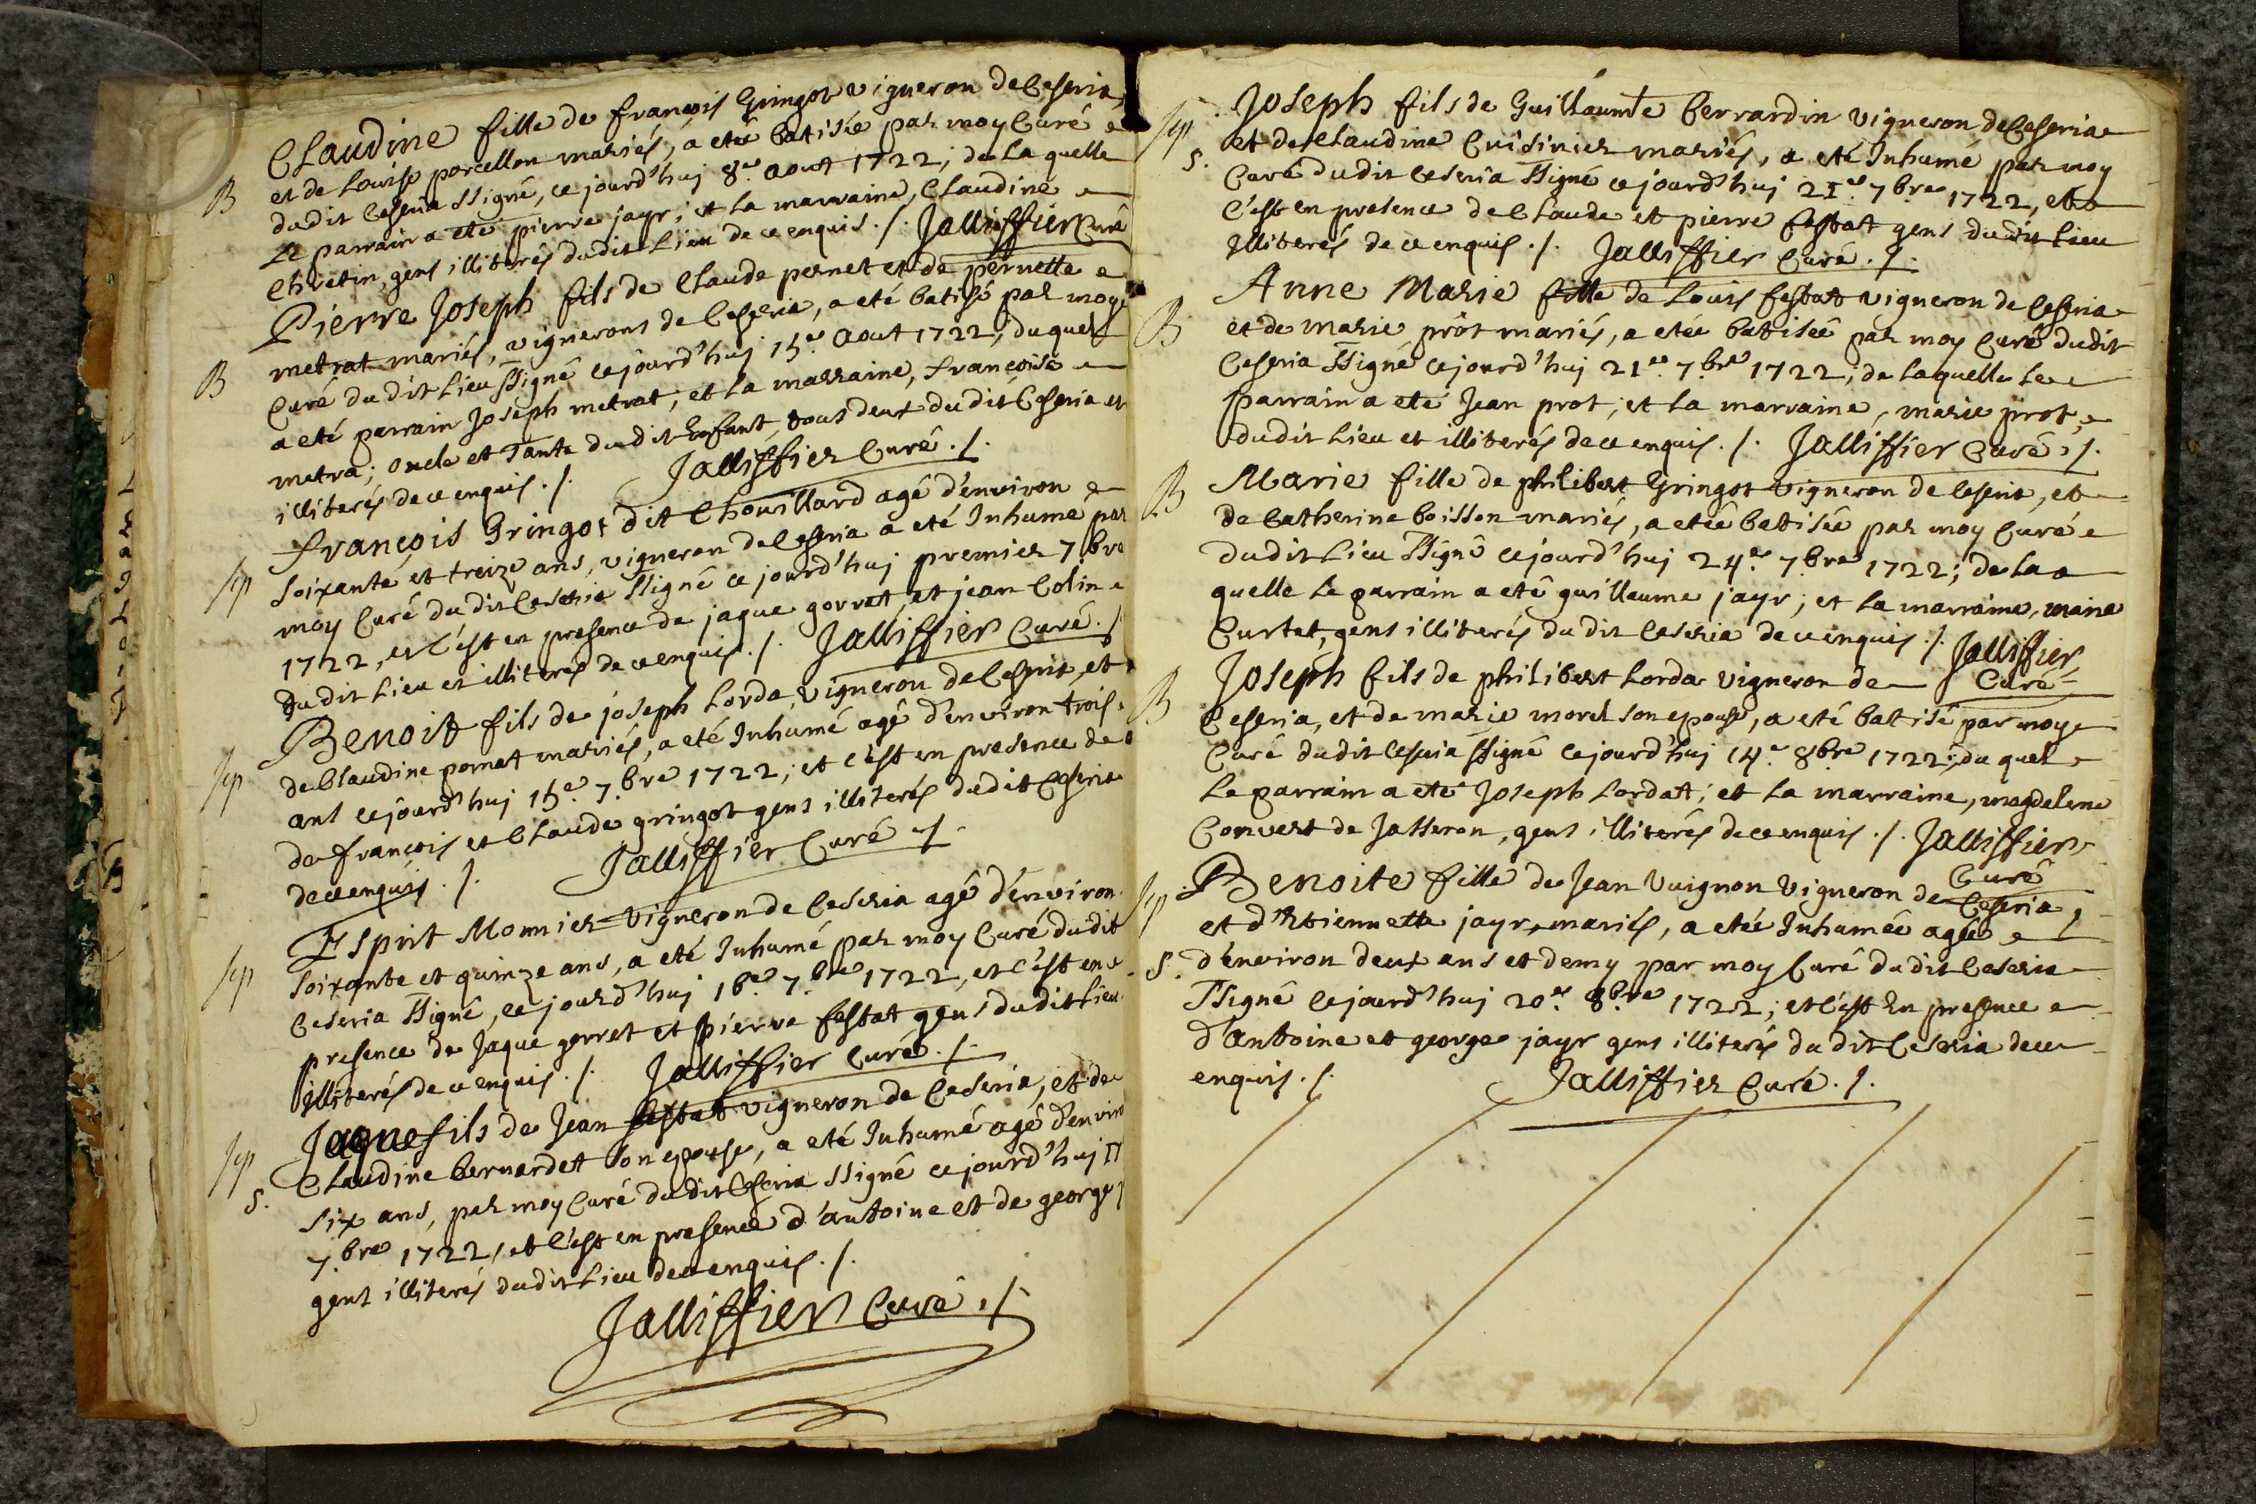 Claudine fille de françois Gringot vigneron de Ceseria,
et de Louise porcellon mariés, a eteé batisée par moy Curé
B
dudit Ceseria ssigné, ce jourd'huj 8.e aout 1722; de la quelle
Le parrain a eté pierre jayr; et la marraine, Claudine
Chretin, gens illiterés dudit Lieu de ce enquis ./. Jalliffier Curé
Pierre Joseph fils de Claude pernet et de pernette
metrat mariés, vignerons de Ceseria, a eté batisé par moy
B
Curé dudit Lieu ssigné cejourd'huj 15.e Aout 1722, du quel
a eté parrain Joseph metrat; et la marraine, françoise
metra; oncle et Tante dudit Enfant, tous deux dudit Ceseria et
illiterés de ce enquis ./. Jalliffier Curé ./.
françois Gringot dit Chouillard agé d'environ
sep
soixante et treize ans, vigneron de Ceseria a eté Inhumé par
moy Curé dudit Ceseria ssigné ce jourd'huj premier 7.bre
1722, et c'est en presence de jaque gorret, et jean Colin
dudit Lieu et illiterés de ce enquis ./. Jalliffier Curé ./.
Benoit fils de joseph Lorda, vigneron de Ceseria, et
sep
de Claudine pornat mariés, a eté Inhumé agé d'environ trois
ans cejourd'huj 15.e 7.bre 1722; et c'est en presence de
de françois et Claude gringot gens illiterés dudit Ceseria
de ce enquis ./. Jalliffier Curé ./.
Esprit Monnier vigneron de Ceseria agé d'environ
sep
soixante et quinze ans, a eté Inhumé par moy Curé dudit
Ceseria ssigné, ce jourd'huj 16.e 7.bre 1722, et c'est en
presence de Jaque gorret et pierre festat gens dudit Lieu
illiterés de ce enquis ./. Jalliffier Curé ./.
Jaque fils de Jean festat vigneron de Ceseria, et de
sep
Claudine bernardet son epouse, a eté Inhumé agé d'environ
S.
six ans, par moy Curé dudit Ceseria ssigné ce jourd'huj 17
7.bre 1722, et c'est en presence d'antoine et de george
gens illiterés dudit Lieu de ce enquis ./.
Jalliffier Curé ./.
Joseph fils de Guillaume berrardin vigneron de Ceseria
sep
et de Claudine Cuisinier mariés, a eté Inhumé par moy
S.
Curé dudit Ceseria ssigné ce jourd'huj 21.e 7.bre 1722, et
c'est en presence de Claude et pierre festat gens dudit Lieu
Illiterés de ce enquis ./. Jalliffier Curé ./.
Anne Marie fille de Louis festat vigneron de Ceseria
B
et de marie prôt mariés, a etée batiseé par moy Curé dudit
Ceseria ssigné ce jourd'huj 21.e 7.bre 1722; de laquelle Le
parrain a eté Jean prot; et la marraine, marie prot,
dudit Lieu et illiterés de ce enquis ./. Jalliffier Curé ./.
B
Marie fille de philibert Gringot vigneron de Ceseria, et
de Catherine boisson mariés, a eteé batiseé par moy Curé
dudit Lieu ssigné ce jourd'huj 24.e 7.bre 1722; de la
quelle Le parrain a eté guillaume jayr; et la marraine,
Curtet, gens illiterés dudit Ceseria de ce enquis ./. Jalliffier
Curé
Joseph fils de philibert Lorda vigneron de
B
Ceseria, et de marie morel son epouse, a eté batisé par moy
Curé dudit Ceseria ssigné ce jourd'huj 14.e 8bre 1722; du quel
Le parrain a eté Joseph Lordat; et La marraine, magdelene
Convert de Jasseron, gens illiterés de ce enquis ./. Jalliffier
Curé
Benoite fille de Jean Vuignon vigneron de Ceseria,
sep
et d'Etiennette jayr, mariés, a eteé Inhumeé ageé
S.
d'environ deux ans et demy par moy Curé dudit Ceseria
ssigné ce jourd'huj 20.e 8.bre 1722; et c'est En presence
d'antoine et george jayr gens illiterés dudit Ceseria de ce
enquis ./. Jalliffier Curé ./.